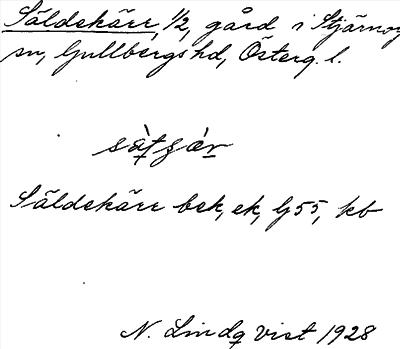 Säldekärr, 1/2, gård i Stjärnorp
sn, Gullbergs hd, Österg. l.
Säldekärr bek, ek, G 55, kb
N. Lindqvist 1928